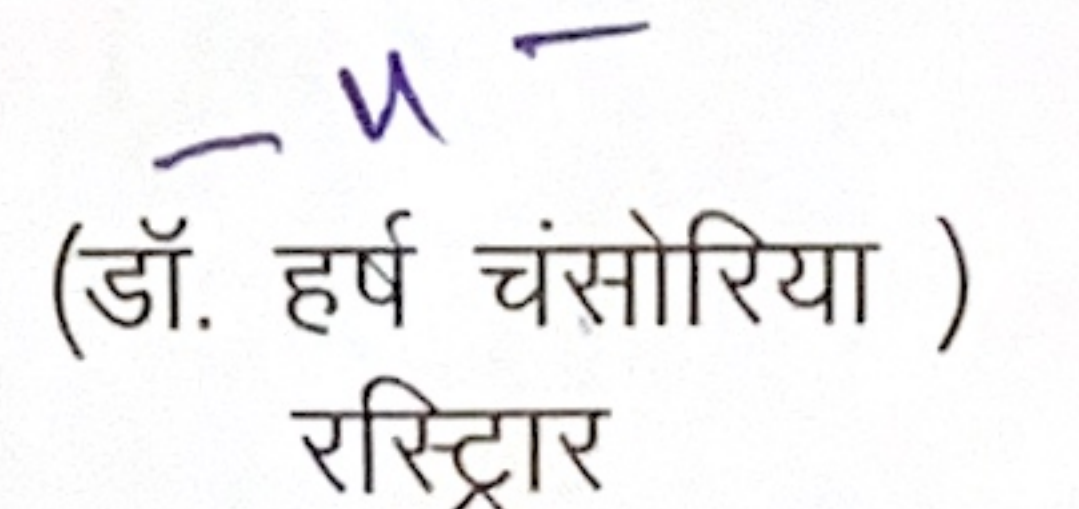 (डॉ. हर्ष चंसोरिया )
रस्ट्रिार